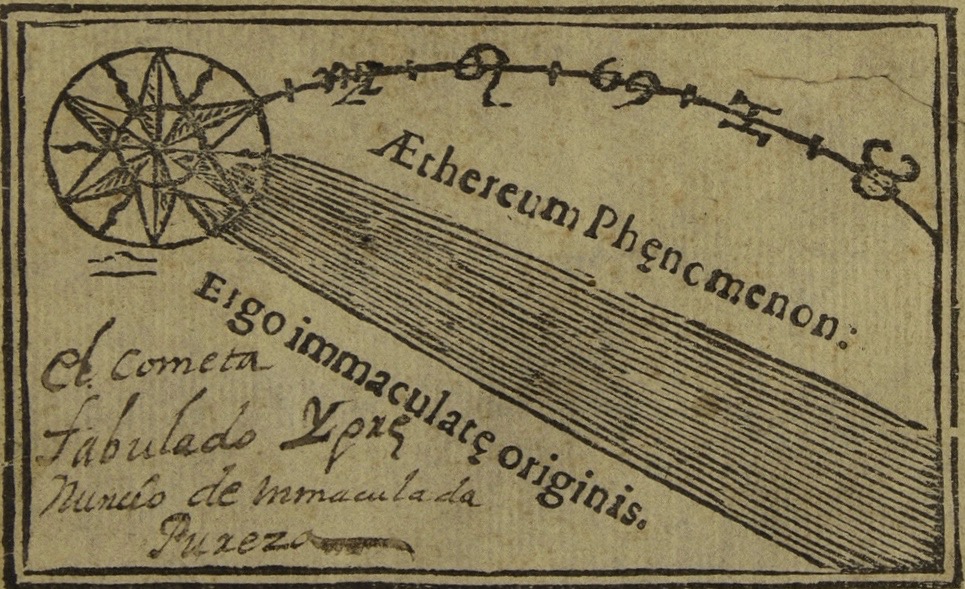 ♍ ♌ ♋ ♊ ♉
Æthereum Phęncmenon:
Ergo immaculatę originis.
el Cometa
fabulado Ypre
Nuncio de Inmaculada
Pureza